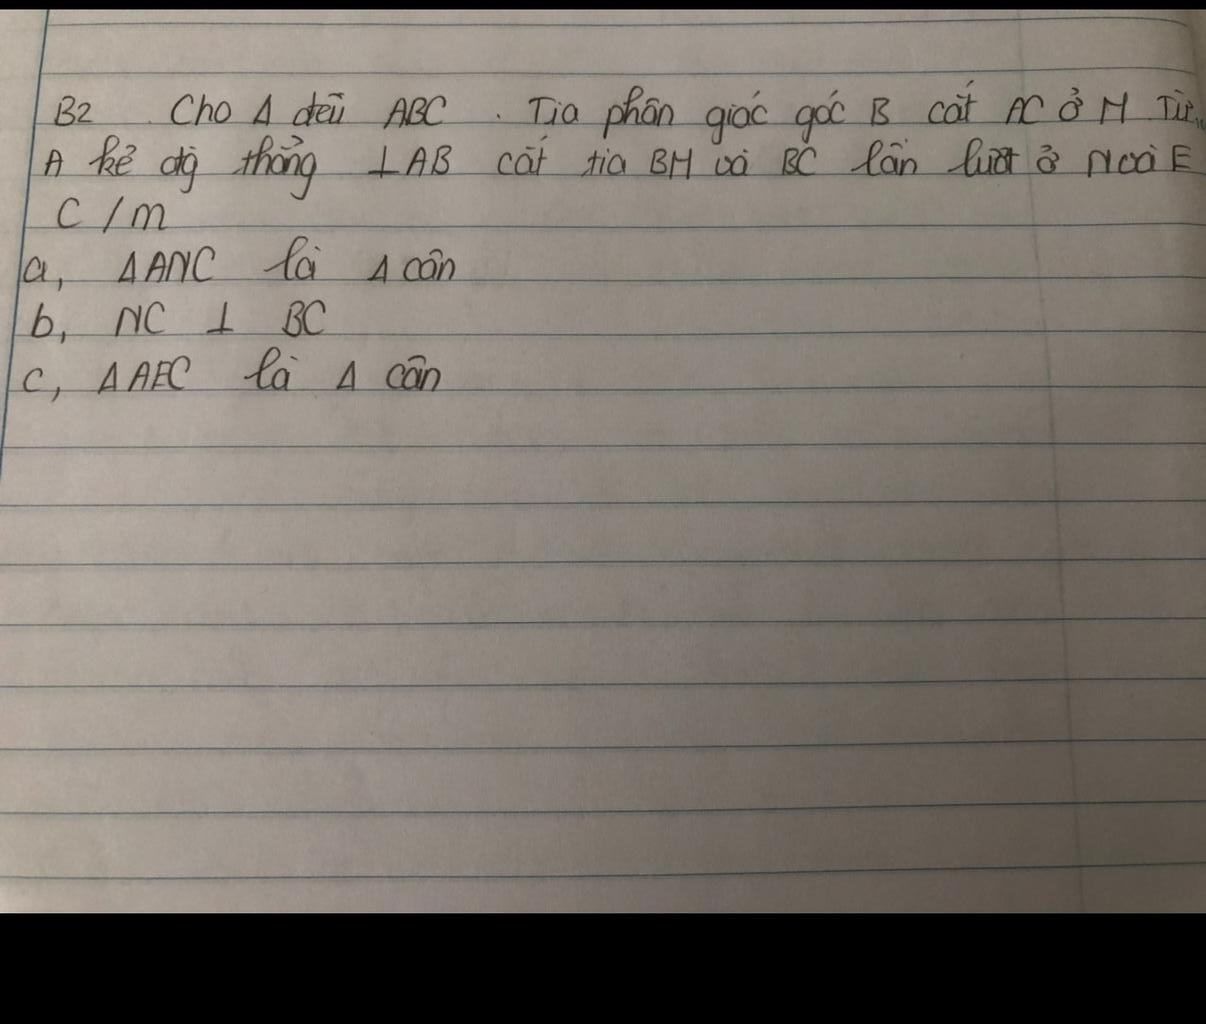 B2 Cho Δ đều ABC. Tia phân giác góc B cắt AC ở M Từ
A kẻ đg thẳng ⊥AB cắt tia BM và BC lần lượt ở N và E
C/m
a, ΔANC là Δ cân
b, NC ⊥ BC
c, ΔAEC là Δ cân